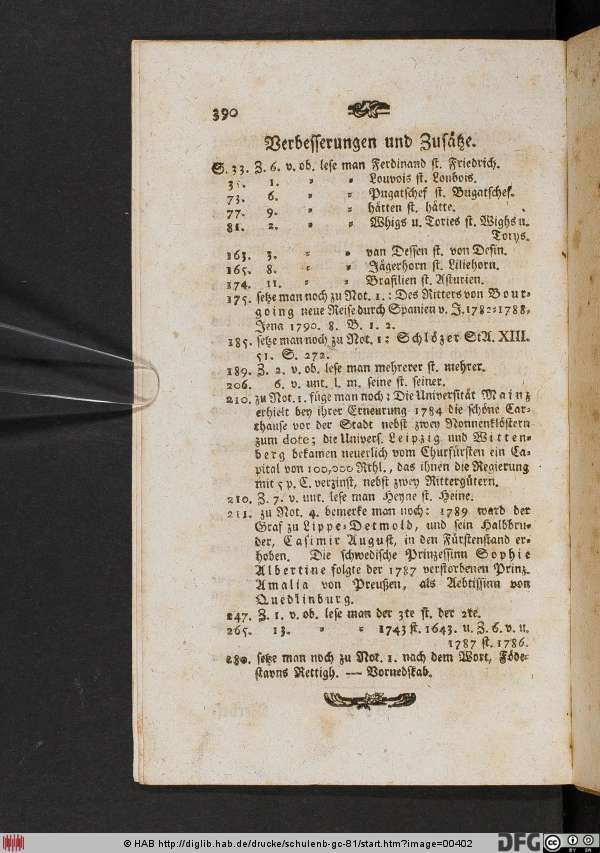 390
Verbesserungen und Zusätze.
S. 33. Z. 6. v. ob. lese man Ferdinand st. Friedrich.
1. „ „ Louvois st. Loubois.
73. 6. „ „ Pugatschef st. Bugatschef.
77. 9. „ „ hätten st. hätte.
81. 2. „ „ Whigs u. Tories st. Wighs u.
Torys.
163. 3. „ „ van Dessen st. von Desin.
165. 8. „ „ Jägerhorn st. Liliehorn.
174. 11. „ „ Brasilien st. Asturien.
175. setze man noch zu Not. 1.: Des Ritters von Bour-
going neue Reise durch Spanien v. J. 1782-1788,
Jena 1790. 8. B. 1. 2.
185. setze man noch zu Not. 1: Schlözer StA. XIII.
51. S. 272.
189. Z. 2. v. ob. lese man mehrerer st. mehrer.
206. 6. v. unt. l. m. seine st. seiner.
210. zu Not. 1. füge man noch: Die Universität Mainz
erhielt bey ihrer Erneurung 1784 die schöne Car-
thause vor der Stadt nebst zwey Nonnenklöstern
zum dote; die Univers. Leipzig und Witten-
berg bekamen neuerlich vom Churfürsten ein Ca-
pital von 100,000 Rthl., das ihnen die Regierung
mit 5 p. C. verzinst, nebst zwey Rittergütern.
210. Z. 7. v. unt. lese man Heyne st. Heine.
211. zu Not. 4. bemerke man noch: 1789 ward der
Graf zu Lippe-Detmold, und sein Halbbru-
der, Casimir August, in den Fürstenstand er-
hoben. Die schwedische Prinzessinn Sophie
Albertine folgte der 1787 verstorbenen Prinz.
Amalia von Preußen, als Aebtissinn von
Quedlinburg.
247. Z. 1. v. ob. lese man der 3te st. der 2te.
265. 13. „ „ 1743 st. 1643. u. Z. 6. v. u.
1787 st. 1786.
280. setze man noch zu Not. 1. nach dem Wort, Föde-
stavns Rettigh. — Vornedskab.
© HAB http://diglib.hab.de/drucke/schulenb-gc-81/start.htm?image=00402
DFG
CC BY SA